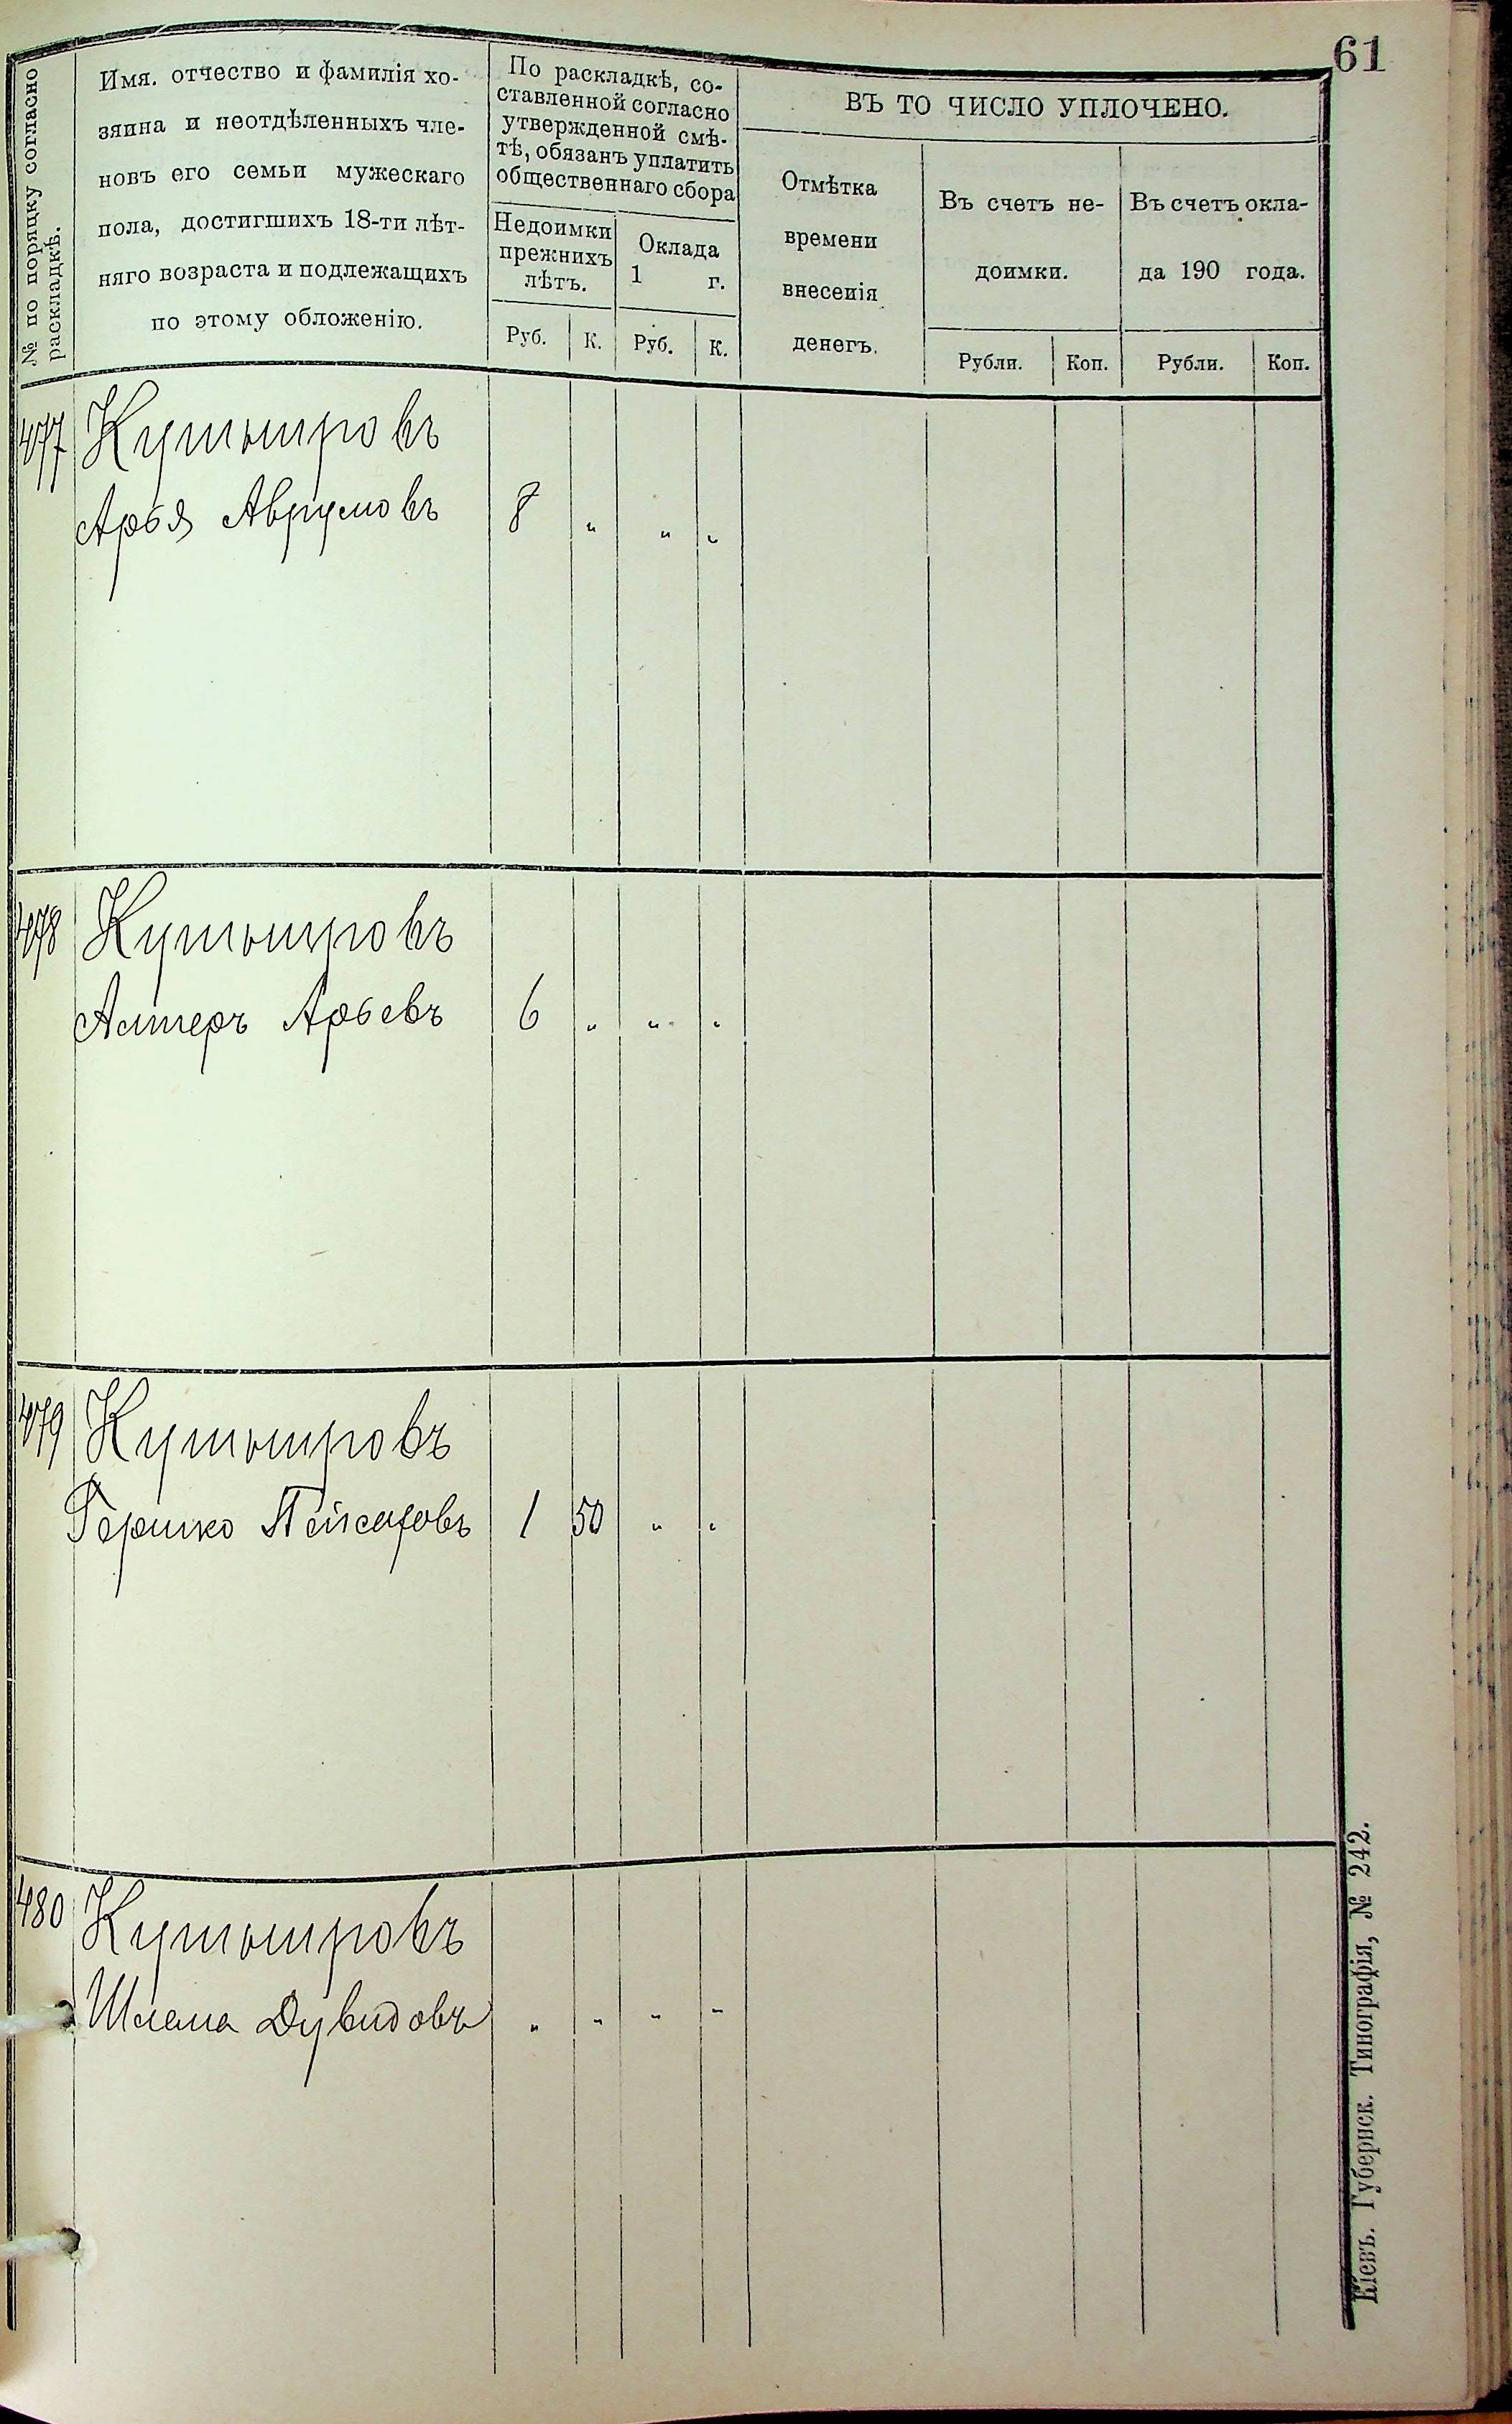 61
№ по порядку согласно
раскладкѣ.
Имя. отчество и фамилія хо-
зяина и неотдѣленныхъ чле-
новъ его семьи мужескаго
пола, достигшихъ 18-ти лѣт-
няго возраста и подлежащихъ
по этому обложенію.
По раскладкѣ, со-
ставленной согласно
утвержденной смѣ-
тѣ, обязанъ уплатить
общественнаго сбора
Недоимки
прежнихъ
лѣтъ.
Оклада
1 г.
Руб. К. Руб. К.
ВЪ ТО ЧИСЛО УПЛОЧЕНО.
Отмѣтка
времени
внесенія
денегъ.
Въ счетъ не-
доимки.
Въ счетъ окла-
да 190 года.
Рубли. Коп. Рубли. Коп.
477 Кутыировъ
Арья Аврумовъ 8 " " "
478 Кутыировъ
Алтеръ Арьевъ 6 " " "
479 Кутыировъ
Гершко Пейсаховъ 1 50 " "
480 Кутыировъ
Шлема Дувидовъ " " " "
Кіевъ. Губернск. Типографія, № 242.